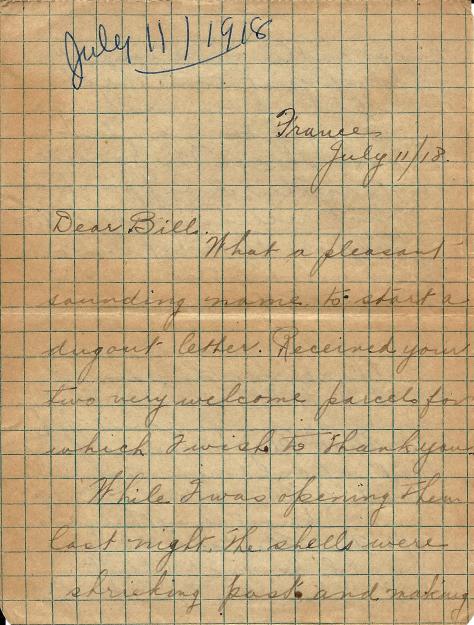 July 11/1918
France
July 11/18.
Dear Bill.
What a pleasant
sounding name to start a
dugout letter. Received your
two very welcome parcels for
which I wish to thank you.
While I was opening them
last night, the shells were
shrieking past and making